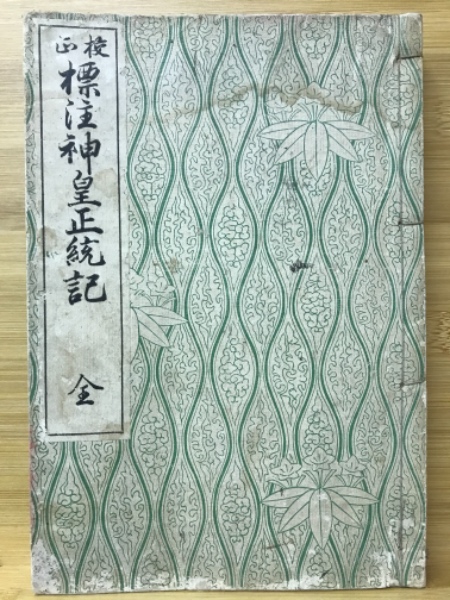 校正
標注神皇正統記
全